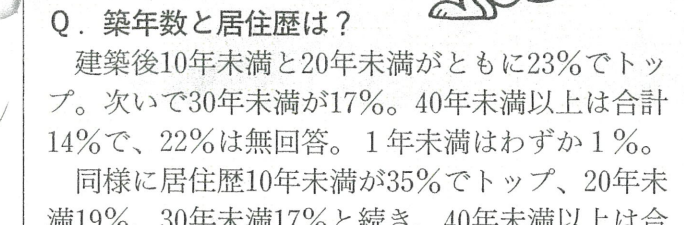 Q．築年数と居住歴は？
建築後10年未満と20年未満がともに23％でトッ
プ。次いで30年未満が17％。40年未満以上は合計
14％で、22％は無回答。１年未満はわずか１％。
同様に居住歴10年未満が35％でトップ、20年未
満19％、30年未満17％と続き、40年未満以上は合